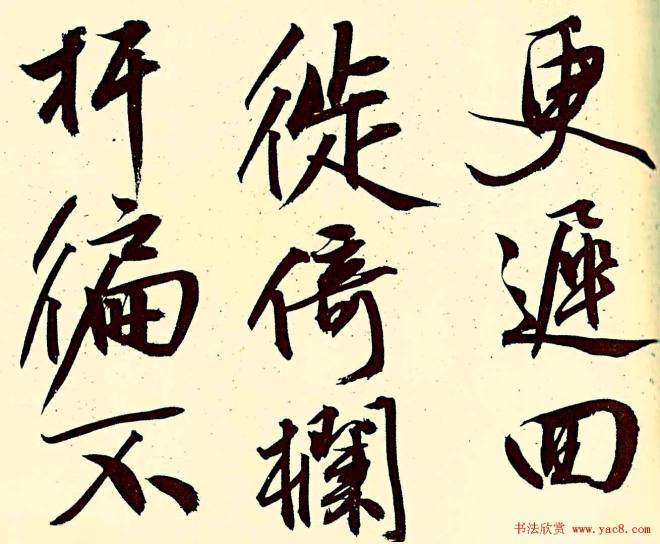 更遲回
徙倚欄
杆徧不
书法欣赏 www.yac8.com